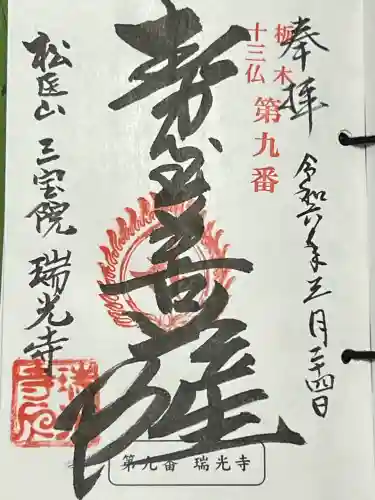 奉拝
令和六年三月二十四日
栃木
十三仏
第九番
勢至菩薩
松医山 三宝院 瑞光寺
第九番 瑞光寺